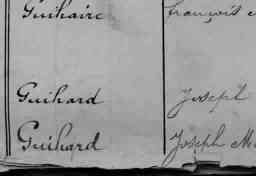 Guihaire François
Guihard Joseph
Guihard Joseph M